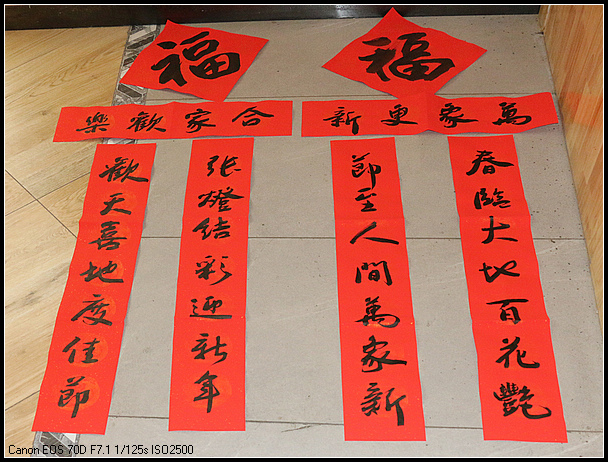 福
福
萬家更新
春臨大地百花艷
節至人間萬家新
合家歡樂
張燈結彩迎新年
歡天喜地度佳節
Canon EOS 70D F7.1 1/125s ISO2500